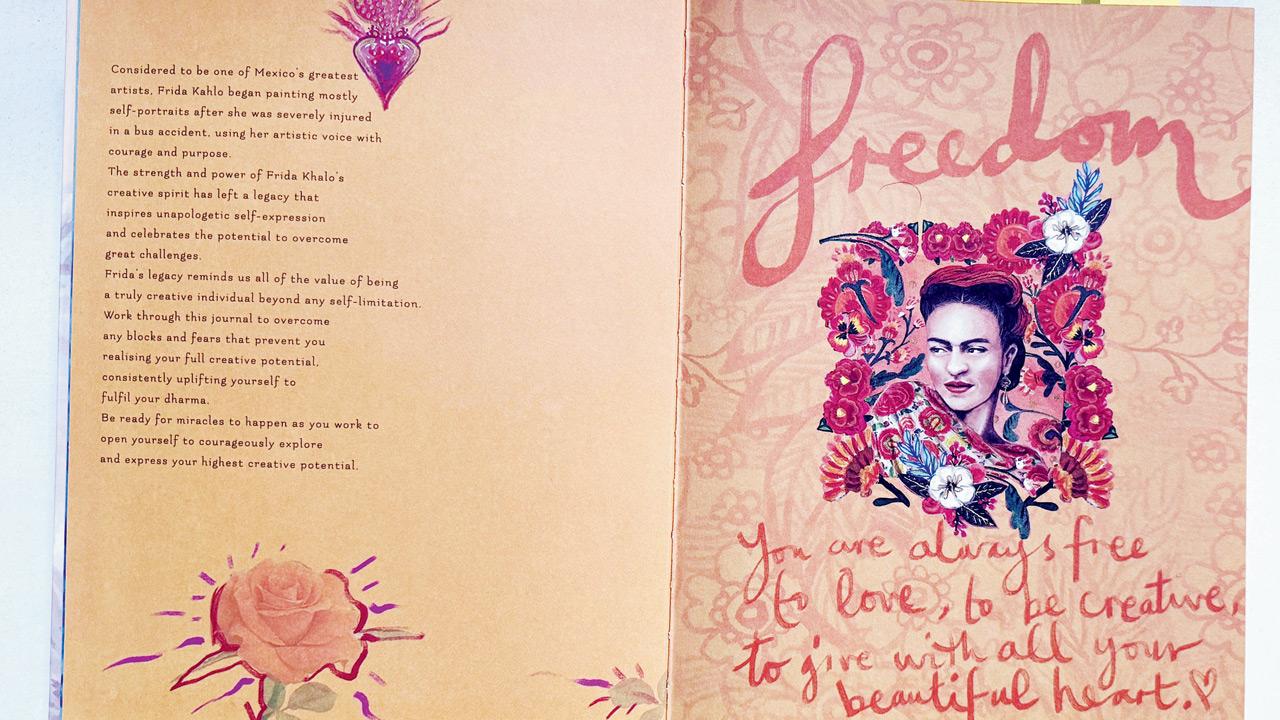 Considered to be one of Mexico's greatest
artists, Frida Kahlo began painting mostly
self-portraits after she was severely injured
in a bus accident, using her artistic voice with
courage and purpose.
The strength and power of Frida Khalo's
creative spirit has left a legacy that
inspires unapologetic self-expression
and celebrates the potential to overcome
great challenges.
Frida's legacy reminds us all of the value of being
a truly creative individual beyond any self-limitation.
Work through this journal to overcome
any blocks and fears that prevent you
realising your full creative potential,
consistently uplifting yourself to
fulfil your dharma.
Be ready for miracles to happen as you work to
open yourself to courageously explore
and express your highest creative potential.
freedom
You are always free
to love, to be creative,
to give with all your
beautiful heart.♡